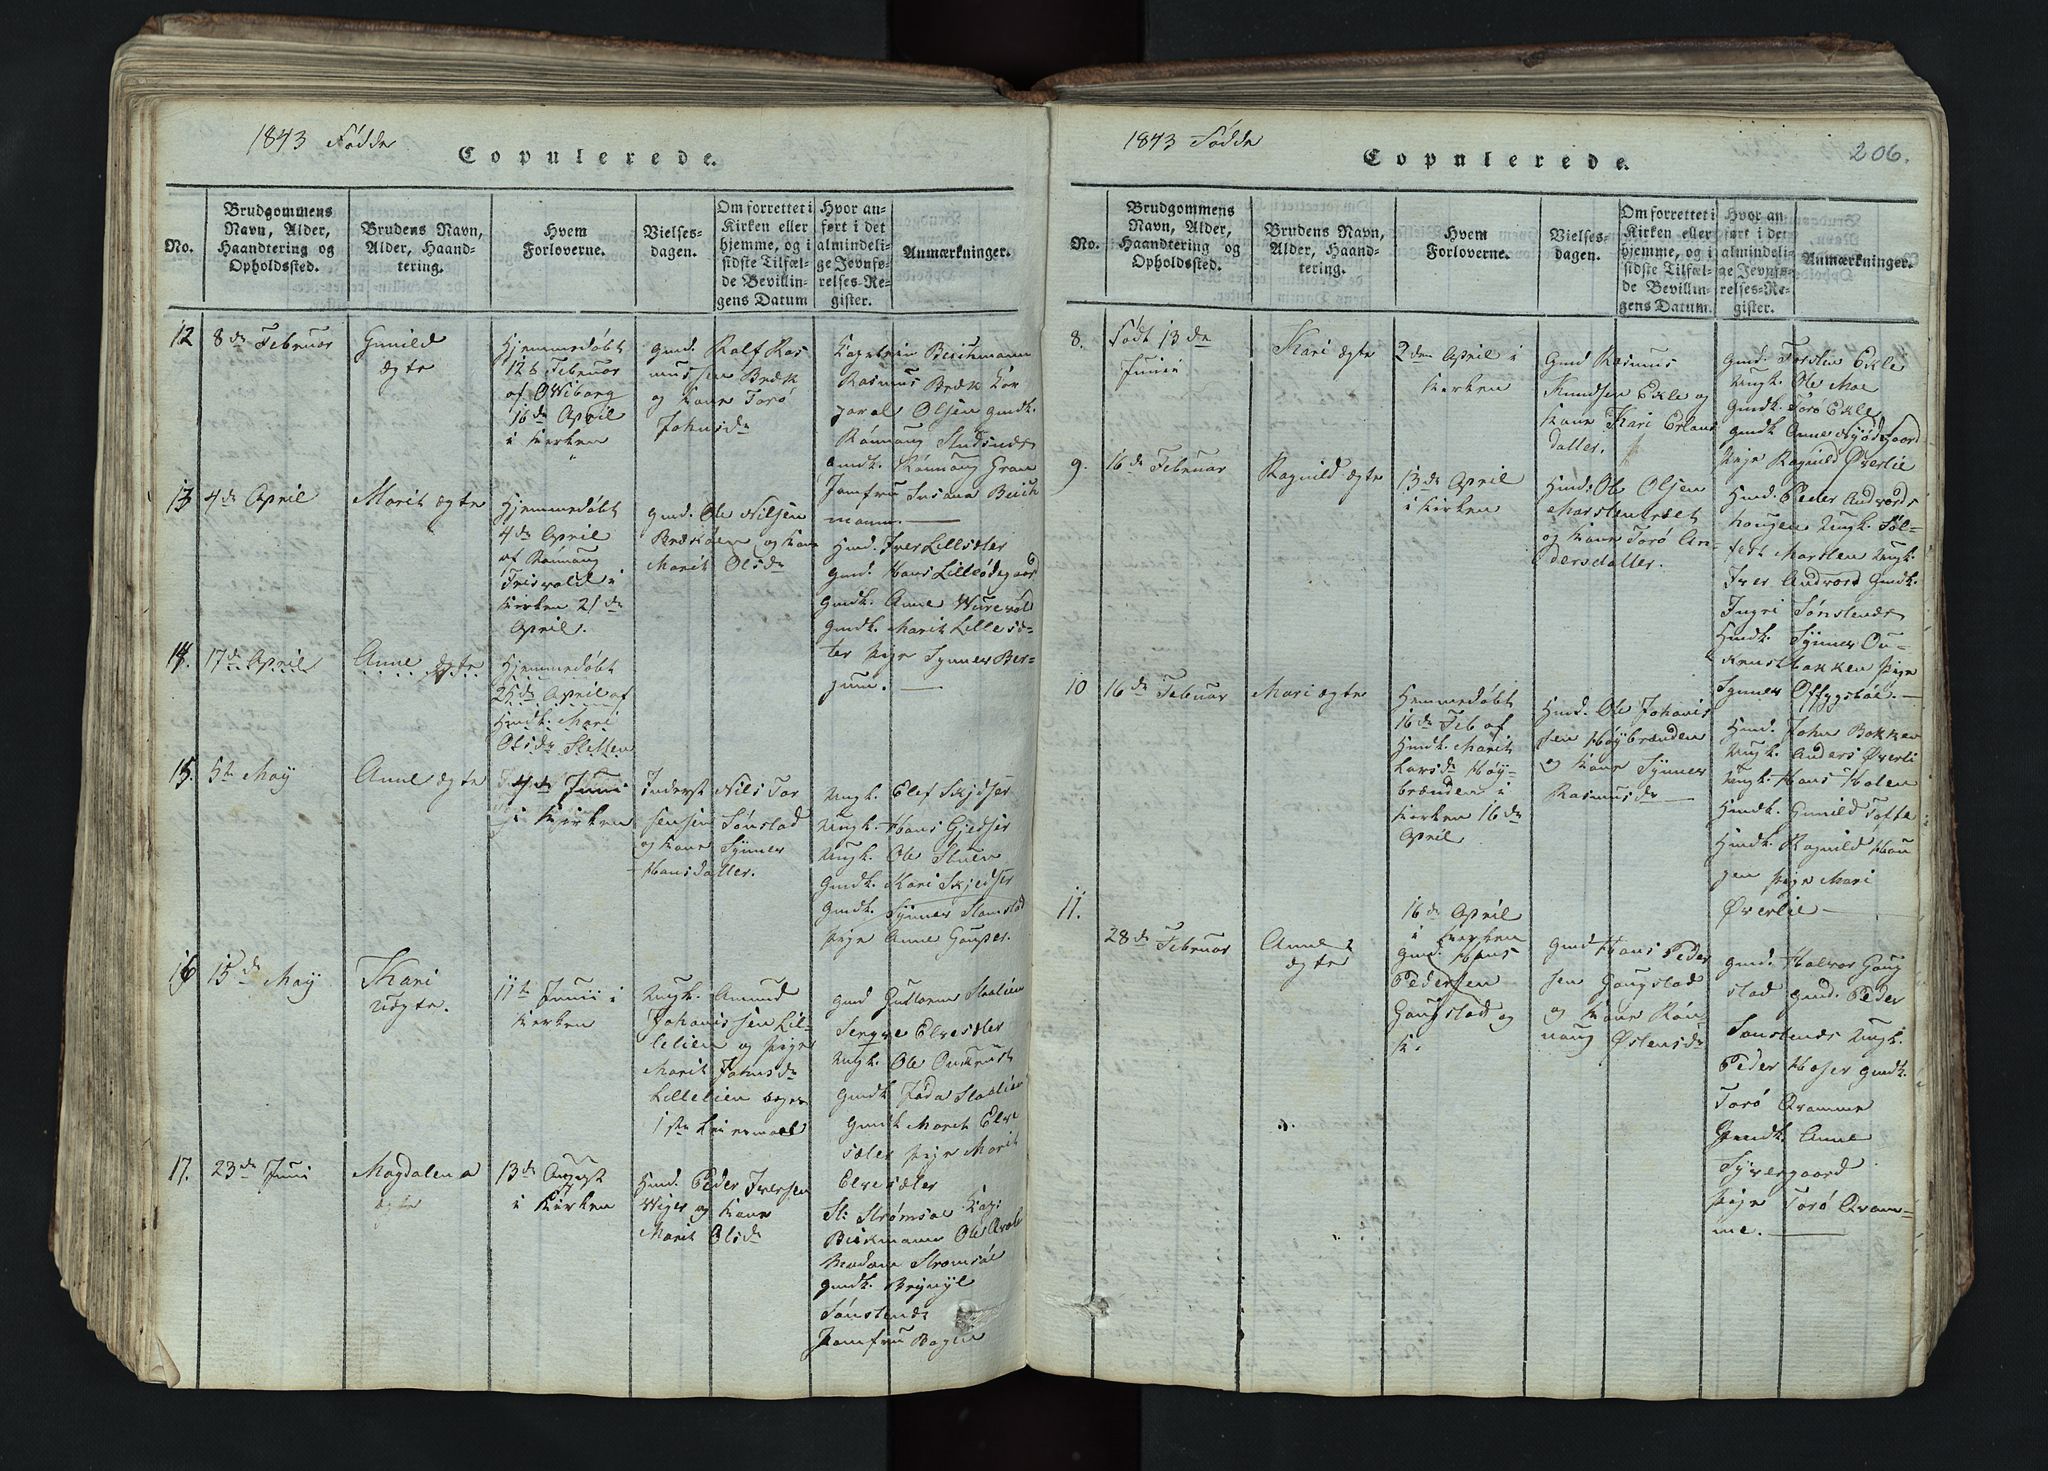 1843 Fødde
Copulerede.
No.
Brudgommens
Navn, Alder,
Haandtering og
Opholdssted.
Brudens Navn,
Alder, Haand-
tering.
Hvem
Forloverne.
Vielses-
dagen.
Om forrettet i
Kirken eller
hjemme, og i
sidste Tilfæl-
de Bevillin-
gens Datum
Hvor an-
ført i det
almindeli-
ge Jevnfø-
relses-Re-
gister.
Anmærkninger.
12
8de Februar
Gunild
ægte
Hjemmedøbt
12te Februar
af O Wiborg
16de April
i Kirken
gmd. Rolf Ras
mussen Bræk
og Kone Torø
Johnsdr
Kaptein Beichmann
Rasmus Bræk Kor
poral Olsen gmdk.
Rønnaug Stadsnæs
gmdk. Rønnaug Gran
Jomfru Susana Beich
mann.
13
4de April
Marit ægte
Hjemmedøbt
4de April
af Rønnaug
Frisvold i
Kirken 21de
April.
gmd. Ole Nilsen
Brækøen og Kone
Marit Olsdr
Hmd. Iver Lillesæter
gmd. Hans Lilleødegaard
Gmdk. Anne
gmdk. Marit Lillesæ-
ter Pige Synnev Ber-
gum.
14.
17de April
Anne ægte
Hjemmedøbt
25de April af
Hmdk. Mari
Olsdr Sletten
15.
5te May
Anne ægte
4de Juni
i Kirken
Inderst Nils Tor
stensen Sønstad
og Kone Synnev
Hansdatter.
Ungk. Elef Skjedser
Ungk. Hans Gjedser
Ungk. Ole Stuen
Gmdk. Kari Skjedser
Gmdk. Synnev Sønstad
Pige Anne Gauper.
16
15de May
Kari
uægte.
11te Juni i
Kirken
Ungk. Amund
Johanissen Lil-
lelien og Pige
Marit Johnsdr
Lillelien begges
1ste Leiermaal
gmd Guttorm Staalien
Sergve Elvesæter
Ungk. Ole Oukrust
gmdk Joda Staalien
gmdk Marit Elve
sæter Pige Marit
Elvesæter
17.
23de Juni
Magdalena
ægte
13de August
i Kirken
Hmd. Peder Iversen
Wiger og Kone
Marit Olsdr
St. Strømsøe Kapt
Beichmann Ole
Madame Strømsøe
gmdk. Brynyl
Sønstends
Jomfru Bogen
1843 Fødde
Copulerede.
206.
No.
Brudgommens
Navn, Alder,
Haandtering og
Opholdssted.
Brudens Navn,
Alder, Haand-
tering.
Hvem
Forloverne.
Vielses-
dagen.
Om forrettet i
Kirken eller
hjemme, og i
sidste Tilfæl-
de Bevillin-
gens Datum.
Hvor an
ført i det
almindeli-
ge Jevnfø-
relses-Re-
gister.
Anmærkninger.
8.
Født 13de
Junii
Kari ægte
2den April i
Kirken
Gmd Rasmus
Knudsen Ekle og
Kone Kari Erlands
datter.
gmd. Tosten Ekle
Ungk. Ole Moe
gmdk. Torø Ekle
gmdk Anne Nyødegaard
Pige Ragnild Øverlie
9.
16de Februar
Ragnild ægte
13de April
i Kirken
Hmd. Ole Olsen
Marstenræet
og Kone Torø An-
dersdatter.
Hmd. Peder Andvords
haugen Ungk. Søl-
fest Marsten Ungk.
Iver Andvord Gmdk.
Ingri Sønstends
Hmdk. Synnev Ou-
krustbakken Pige
Synnev Offygsbøe.
10
16de Februar
Mari ægte
Hjemmedøbt
16de Feb af
Hmdk. Marit
Larsdr Høy-
brænden i
Kirken 16de
April
Hmd. Ole Johanis
sen Høybrænden
og Kone Synnev
Rasmusdr
Hmd. John Bakken
Ungk. Anders Øverli
Ungk. Hans Holen
Hmdk. Gunild Totte
Hmdk. Ragnild Hau
gen Pige Mari
Øverlie
11.
28de Februar
Anne
ægte
16de April
i Kirken
gmd. Hans
Pedersen
Gaugstad og
K.
gmd Hans Peder
sen Gaugstad
og Kone Røn
naug Østensdr
gmd. Halvor Gaug
stad gmd. Peder
Sønstends Ungk.
Peder Moser gmdk.
Torø Qvamme
gmdk. Anne
Syvergaard
Pige Torø Qvam-
me.